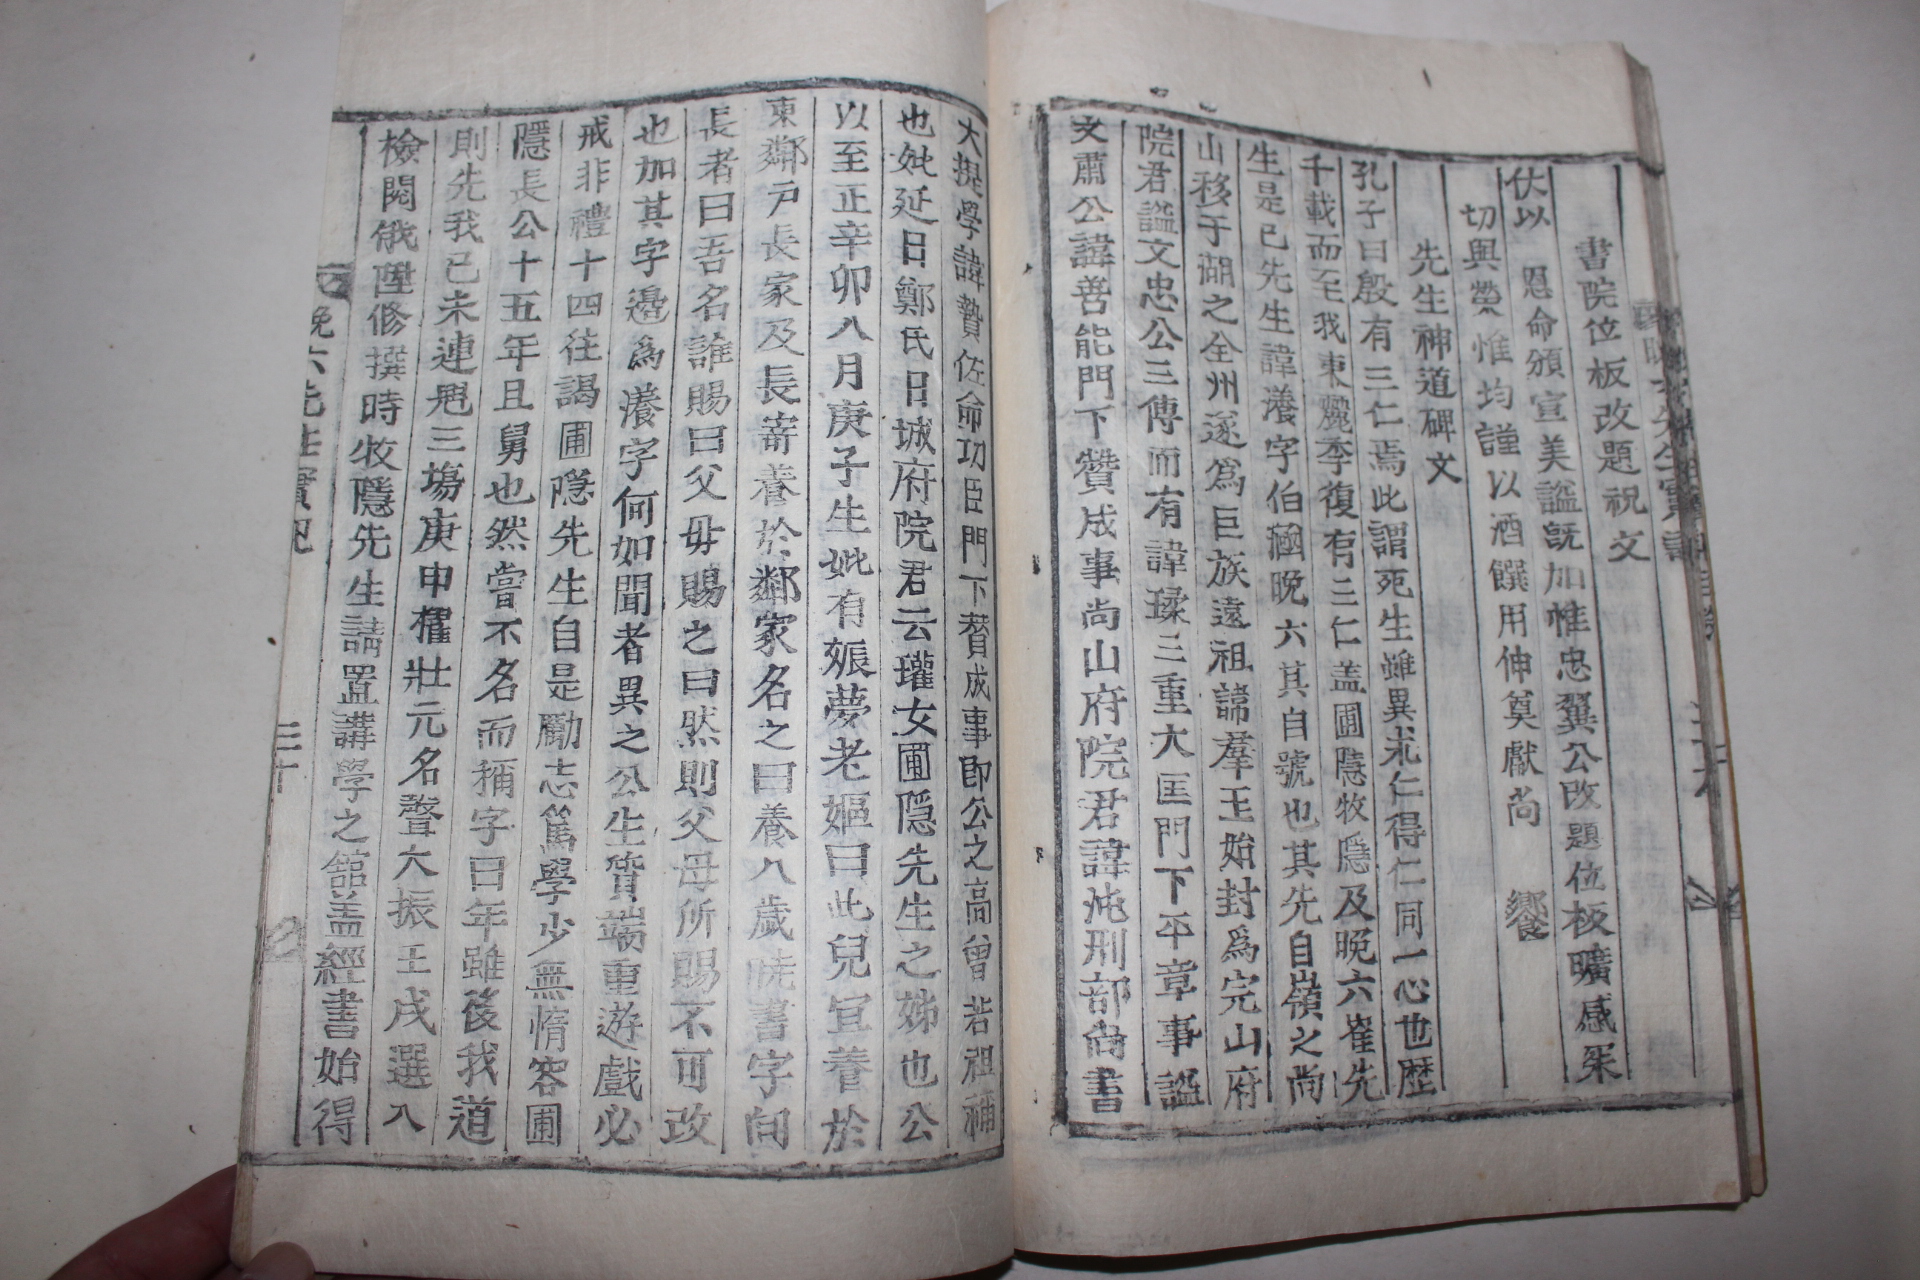 書院位板改題祝文
伏以　恩命頒宣美謚旣加惟忠翼公改題位板曠感冞
切與榮惟均謹以酒饌用伸奠獻尚　饗
先生神道碑文
孔子曰殷有三仁焉此謂死生雖異求仁得仁同一心也歷
千載而至我東麗季復有三仁盖圃隱牧隱及晩六崔先
生是已先生諱瀁字伯涵晩六其自號也其先自嶺之尚
山移于湖之全州遂爲巨族遠祖諱羣玉始封爲完山府
院君謚文忠公三傳而有諱瑈三重大匡門下平章事謚
文肅公諱善能門下贊成事尚山府院君諱沌刑部尙書
大提學諱贄佐命功臣門下贊成事卽公之高曾若祖禰
也妣延日鄭氏日城府院君云瓘女圃隱先生之姊也公
以至正辛卯八月庚子生妣有娠夢老嫗曰此兒宜養於
東鄰戶長家及長寄養於鄰家名之曰養八歲曉書字問
長者曰吾名誰賜曰父毋賜之曰然則父母所賜不可改
也加其字邊爲瀁字何如聞者異之公生質端重遊戲必
戒非禮十四往謁圃隱先生自是勵志篤學少無惰容圃
隱長公十五年且舅也然嘗不名而稱字曰年雖後我道
則先我己未連魁三塲庚申櫂壯元名聲大振壬戌選入
檢閱俄陞修撰時牧隱先生請置講學之舘盖經書始得
晩六先生實紀
三十